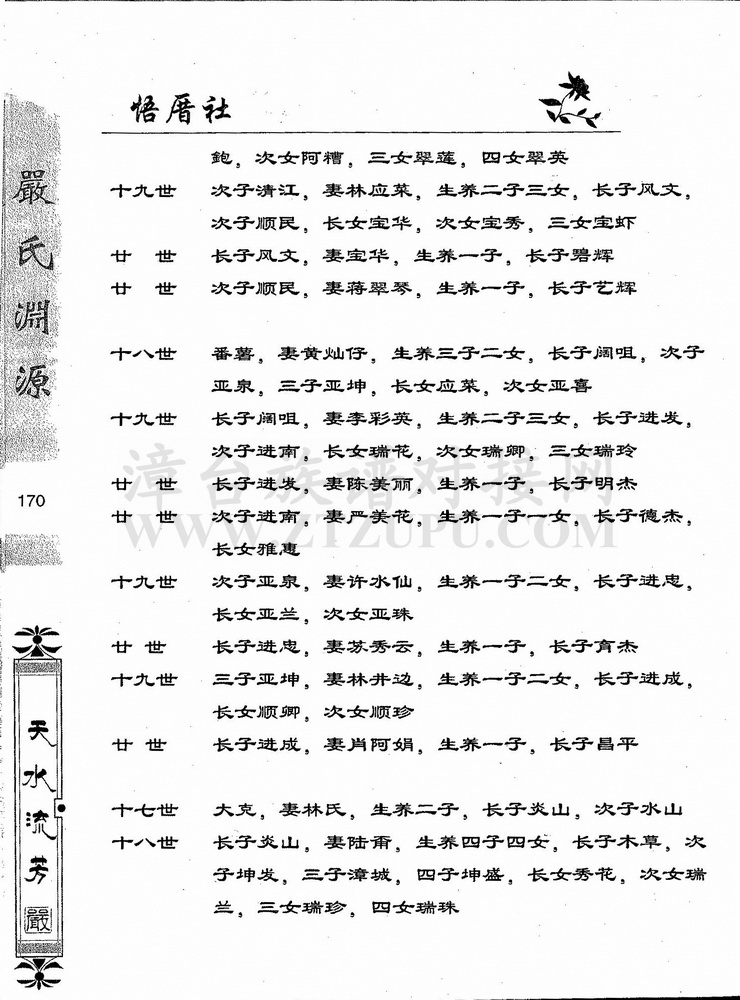 悟厝社
鉋，次女阿糟，三女翠莲，四女翠英
十九世 次子清江，妻林应菜，生养二子三女，长子风文，
次子顺民，长女宝华，次女宝秀，三女宝虾
廿世 长子风文，妻宝华，生养一子，长子碧辉
廿世 次子顺民，妻蒋翠琴，生养一子，长子艺辉
十八世 番薯，妻黄灿仔，生养三子二女，长子阔咀，次子
亚泉，三子亚坤，长女应菜，次女亚喜
十九世 长子阔咀，妻李彩英，生养二子三女，长子进发，
次子进南，长女瑞花，次女瑞卿，三女瑞玲
廿世 长子进发，妻陈美丽，生养一子，长子明杰
廿世 次子进南，妻严美花，生养一子一女，长子德杰，
长女雅惠
十九世 次子亚泉，妻许水仙，生养一子二女，长子进忠，
长女亚兰，次女亚珠
廿世 长子进忠，妻苏秀云，生养一子，长子育杰
十九世 三子亚坤，妻林井边，生养一子二女，长子进成，
长女顺卿，次女顺珍
廿世 长子进成，妻肖阿娟，生养一子，长子昌平
十七世 大克，妻林氏，生养二子，长子炎山，次子水山
十八世 长子炎山，妻陆甭，生养四子四女，长子木草，次
子坤发，三子漳城，四子坤盛，长女秀花，次女瑞
兰，三女瑞珍，四女瑞珠
嚴氏淵源
170
天水流芳
嚴
漳台族谱对接网
WWW.ZTZUPU.COM